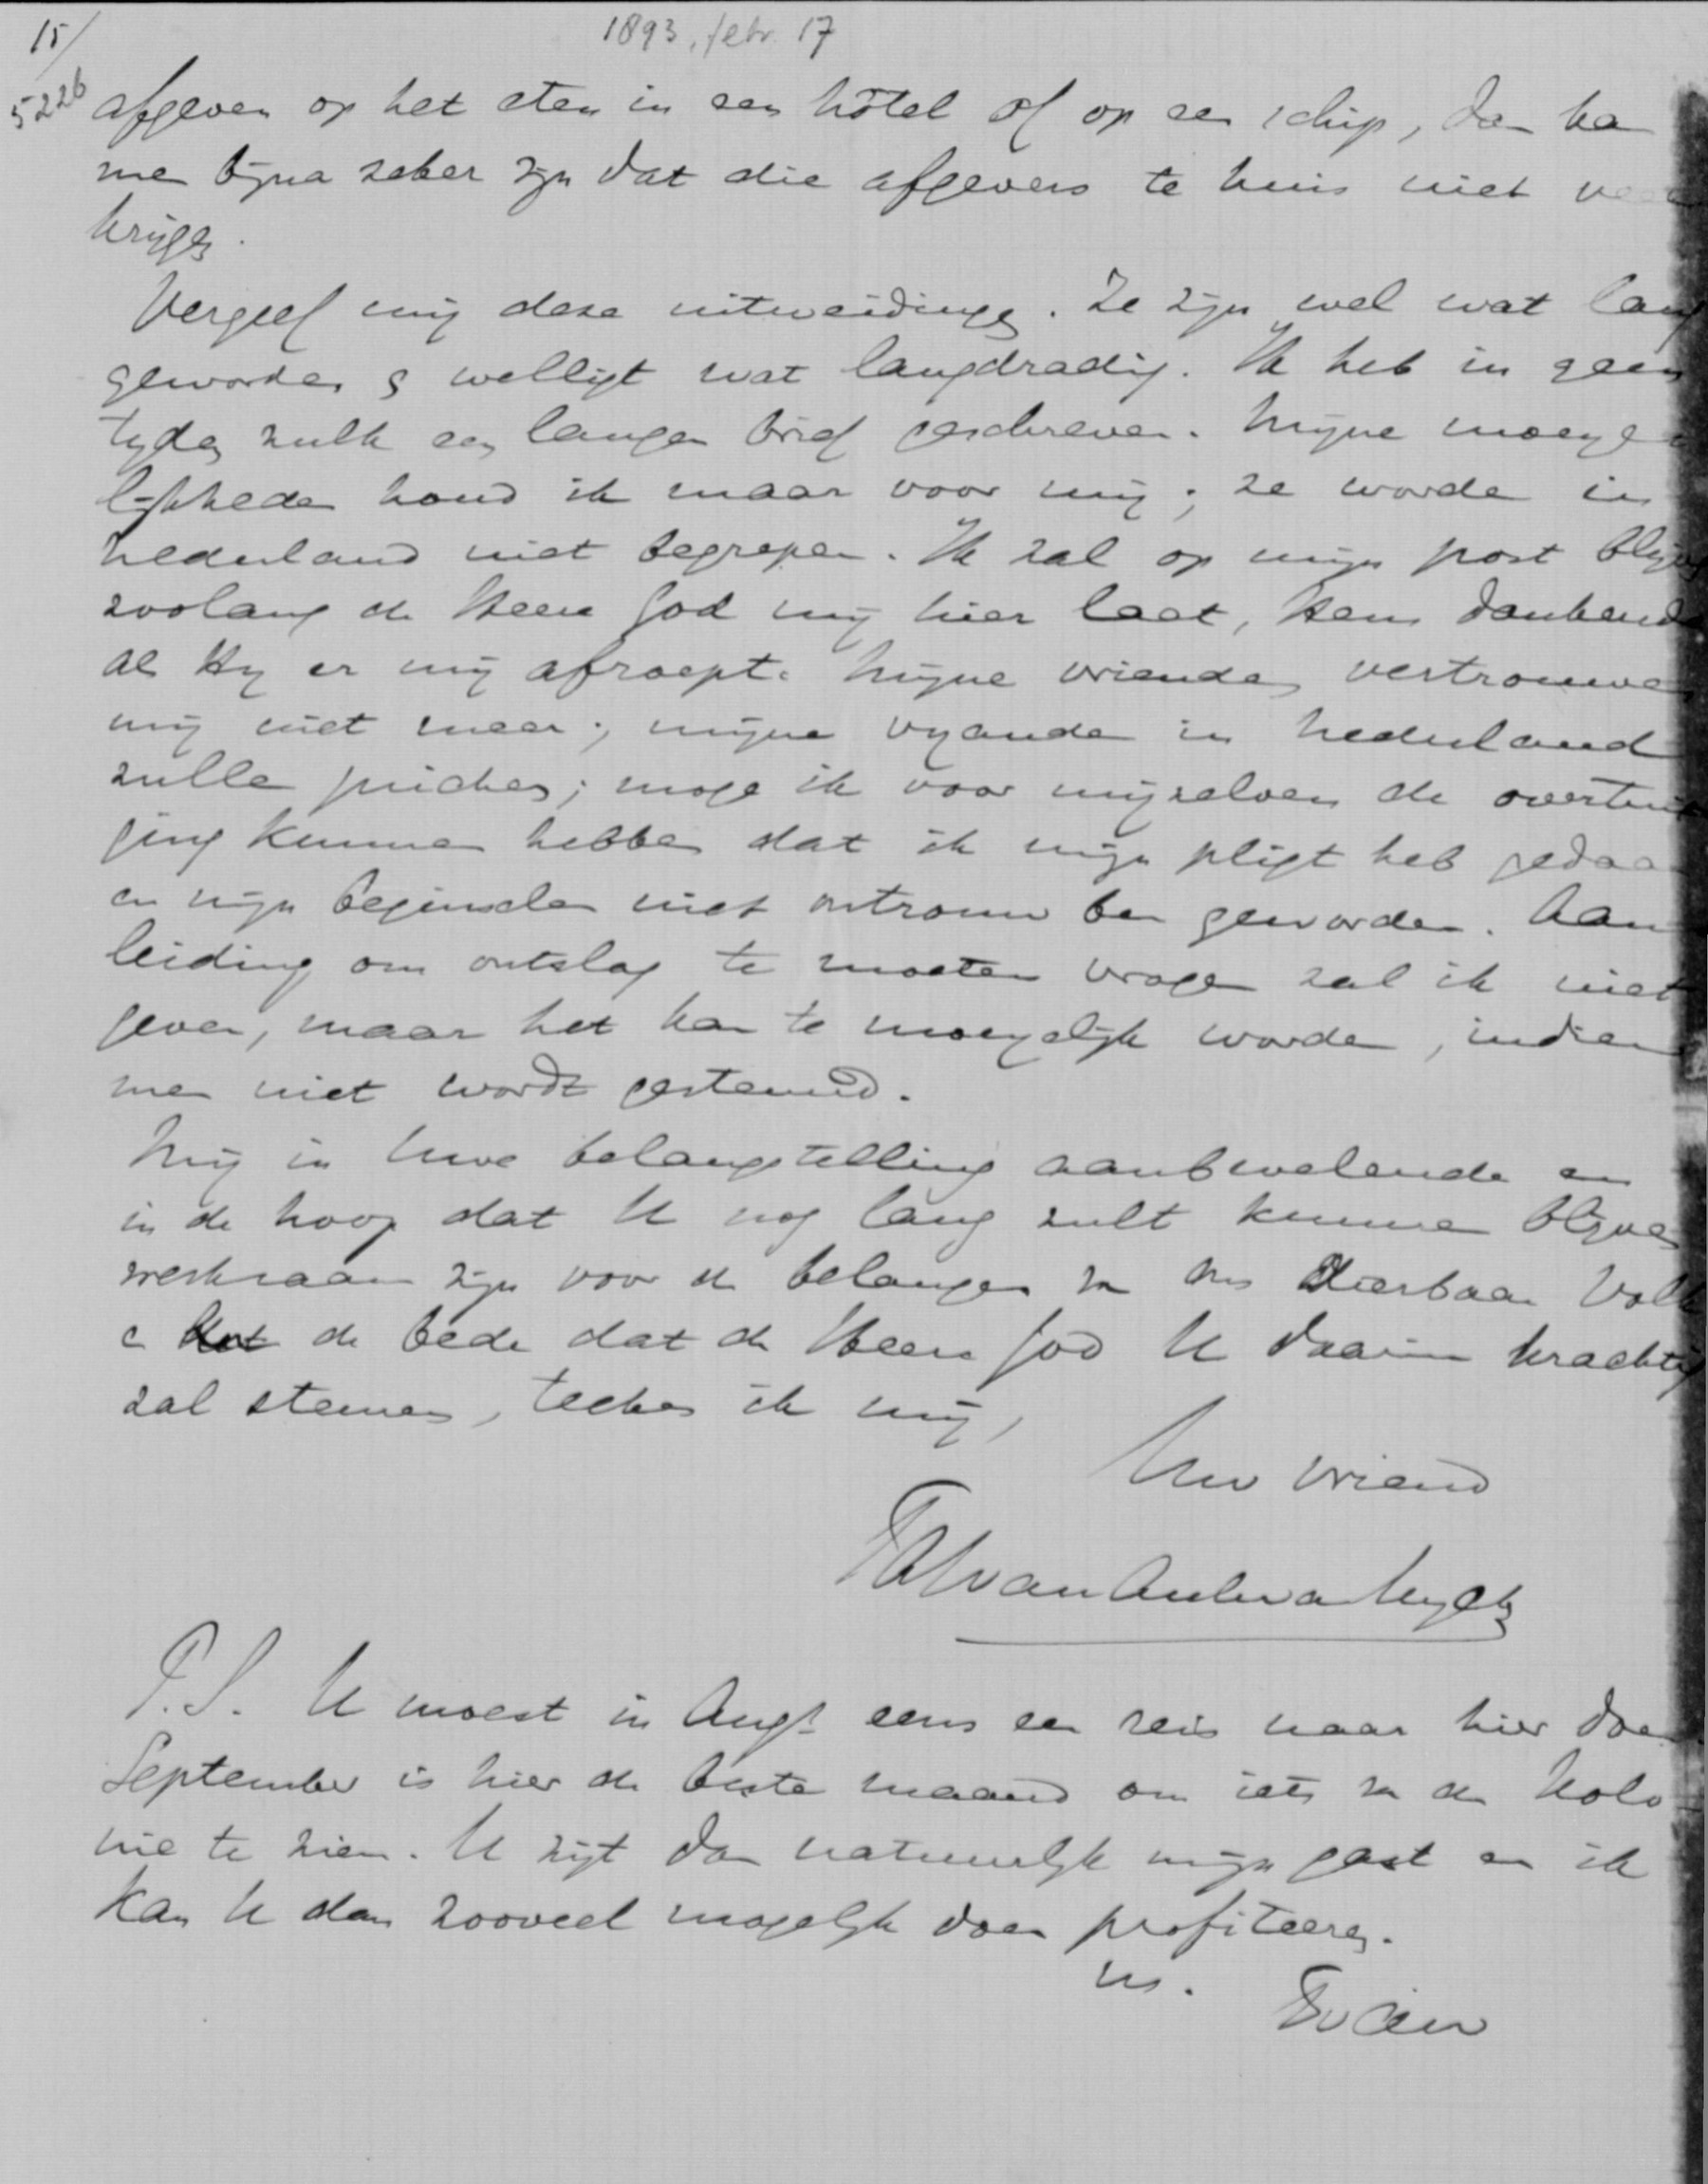 15/
1893, febr. 17
5226
afgeven op het eten in een hôtel of op een schip, dan kan
men bijna zeker zijn dat die afgevers te huis niet
krijgen.
Vergeef mij deze uitweidingen. Ze zijn wel wat lang
geworden & welligt wat langdradig. Ik heb in geen
tijden zulk een langen brief geschreven. Mijne moeye-
lijkheden houd ik maar voor mij; ze worden in
Nederland niet begrepen. Ik zal op mijn post blijven
zoolang de Heere God mij hier laat, Hem dankende
als Hij er mij afroept. Mijne vrienden vertrouwen
mij niet meer; mijne vyanden in Nederland
zullen juichen; moge ik voor mijzelven de overtui-
ging kunnen hebben dat ik mijn pligt heb gedaan
en mijn beginselen niet ontrouw ben geworden. Aan-
leiding om ontslag te moeten vragen zal ik niet
geven, maar het kan te moeyelijk worden, indien
men niet wordt gesteund.
Mij in Uwe belangstelling aanbevelende en
in de hoop dat U nog lang zult kunnen blijven
werkzaam zijn voor de belangen van ons dierbaar Volk
en de bede dat de Heere God U daarin krachtig
zal steunen, teeken ik mij,
Uw vriend
TAJ van Asch van Wijck
P.S. U moest in Augt eens een reis naar hier doen
September is hier de beste maand om iets van de kolo-
nie te zien. U zijt dan natuurlijk mijn gast en ik
kan U dan zooveel mogelijk doen profiteeren.